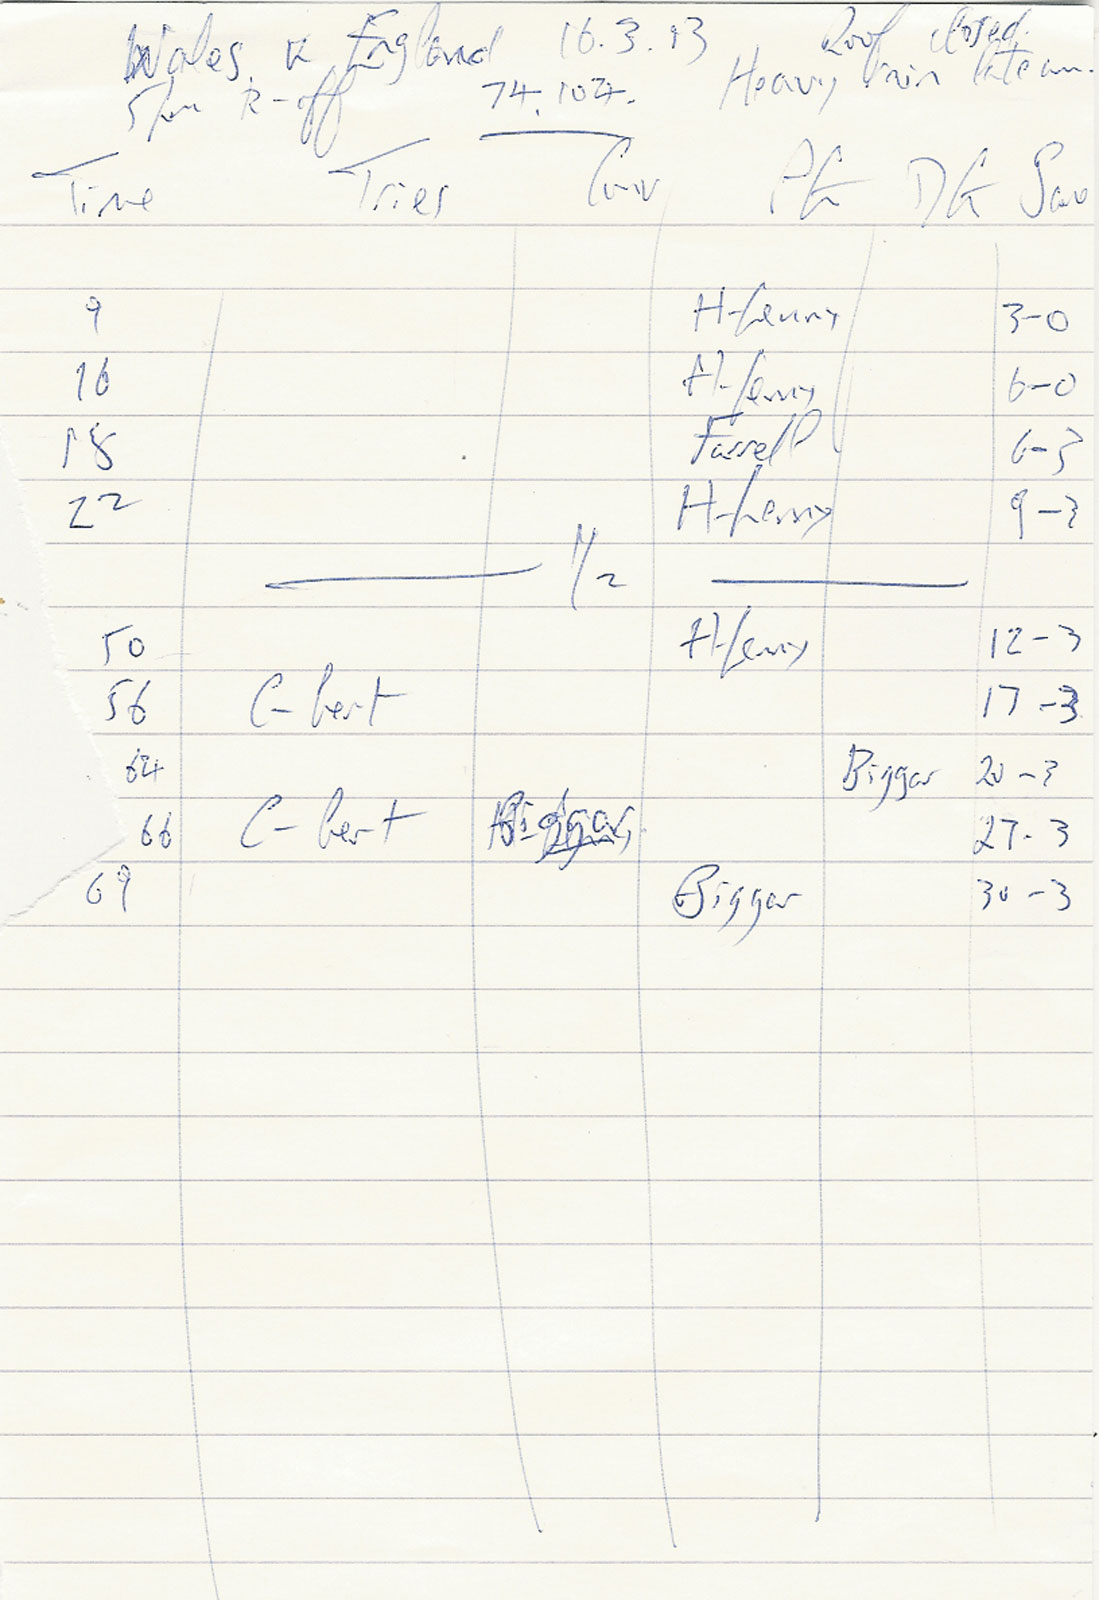 Wales v England 16.3.13 Roof closed.
5pm K-off 74,104. Heavy rain
Time Tries Conv PG DG Scor
9 H-penny 3-0
16 H-penny 6-0
18 Farrell 6-3
22 H-penny 9-3
1/2
50 H-penny 12-3
56 C-bert 17-3
64 Biggar 20-3
66 C-bert Biggar 27-3
69 Biggar 30-3